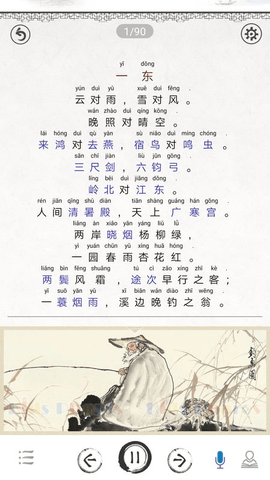 1/90
yī dōng
一 东
yún duì yǔ xuě duì fēng
云对雨，雪对风。
wǎn zhào duì qíng kōng
晚照对晴空。
lái hóng duì qù yàn sù niǎo duì míng chóng
来鸿对去燕，宿鸟对鸣虫。
sān chǐ jiàn liù jūn gōng
三尺剑，六钧弓。
lǐng běi duì jiāng dōng
岭北对江东。
rén jiān qīng shǔ diàn tiān shàng guǎng hán gōng
人间清暑殿，天上广寒宫。
liǎng àn xiǎo yān yáng liǔ lǜ
两岸晓烟杨柳绿，
yì yuán chūn yǔ xìng huā hóng
一园春雨杏花红。
liǎng bìn fēng shuāng tú cì zǎo xíng zhī kè
两鬓风霜，途次早行之客；
yì suō yān yǔ xī biān wǎn diào zhī wēng
一蓑烟雨，溪边晚钓之翁。